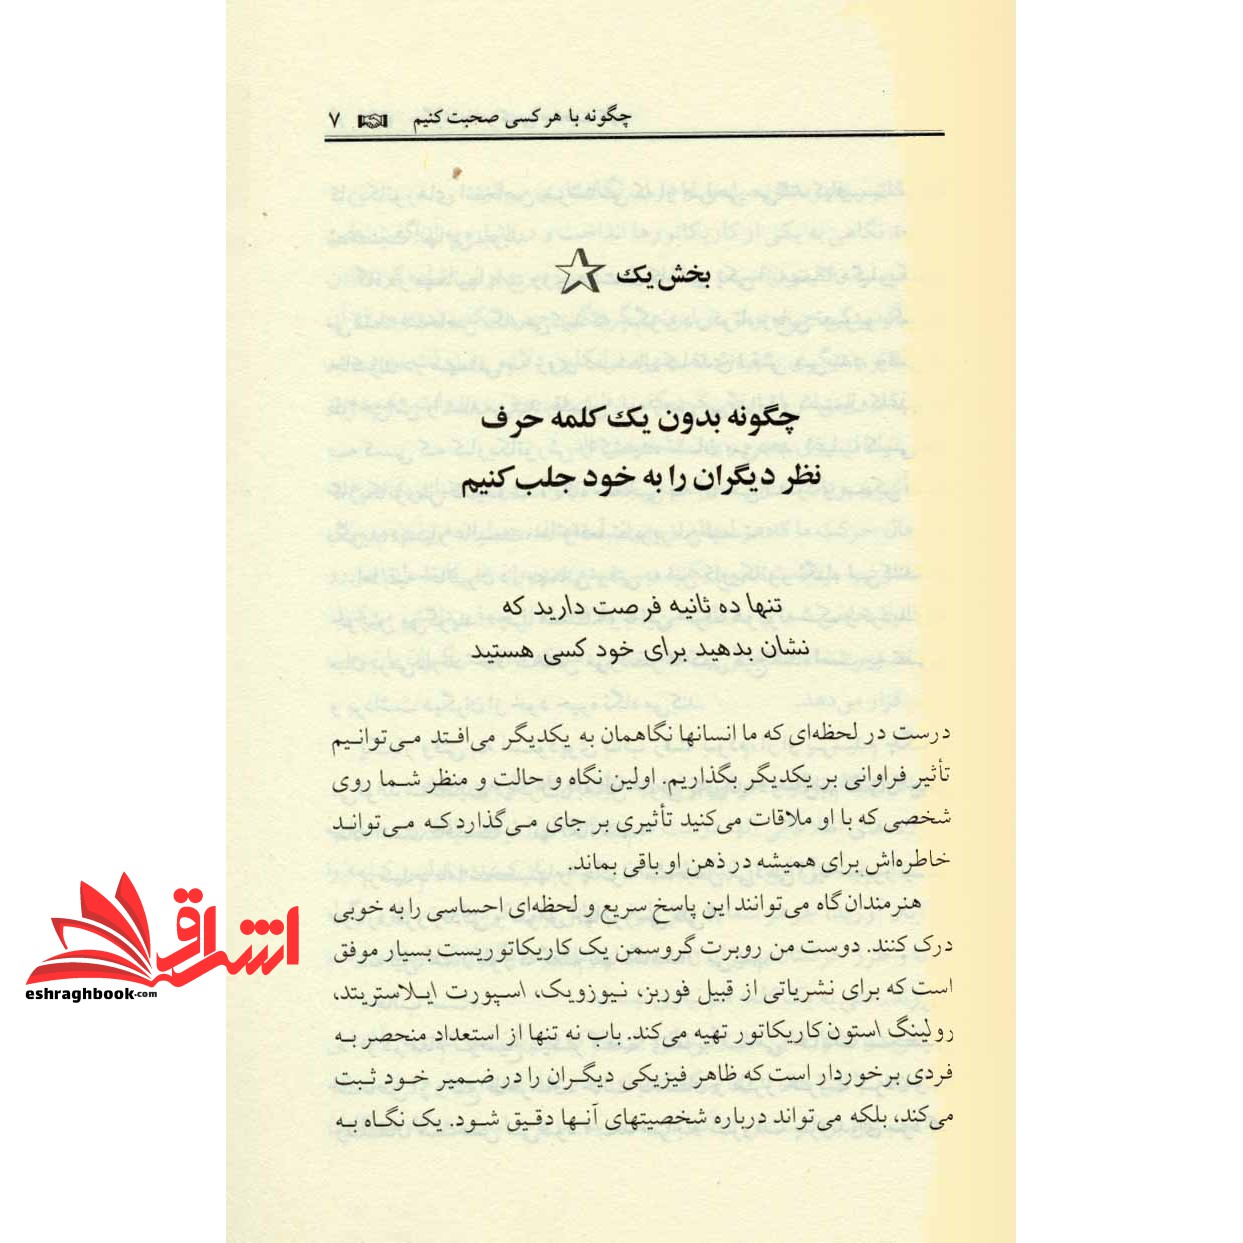 چگونه با هر کسی صحبت کنیم ۷
بخش یک
چگونه بدون یک کلمه حرف
نظر دیگران را به خود جلب کنیم
تنها ده ثانیه فرصت دارید که
نشان بدهید برای خود کسی هستید
درست در لحظه‌ای که ما انسانها نگاهمان به یکدیگر می‌افتد می‌توانیم
تأثیر فراوانی بر یکدیگر بگذاریم. اولین نگاه و حالت و منظر شما روی
شخصی که با او ملاقات می‌کنید تأثیری بر جای می‌گذارد که می‌تواند
خاطره‌اش برای همیشه در ذهن او باقی بماند.
هنرمندان گاه می‌توانند این پاسخ سریع و لحظه‌ای احساسی را به خوبی
درک کنند. دوست من روبرت گروسمن یک کاریکاتوریست بسیار موفق
است که برای نشریاتی از قبیل فوربز، نیوزویک، اسپورت ایلاستریتد،
رولینگ استون کاریکاتور تهیه می‌کند. باب نه تنها از استعداد منحصر به
فردی برخوردار است که ظاهر فیزیکی دیگران را در ضمیر خود ثبت
می‌کند، بلکه می‌تواند درباره شخصیتهای آنها دقیق شود. یک نگاه به
اشراق
eshraghbook.com